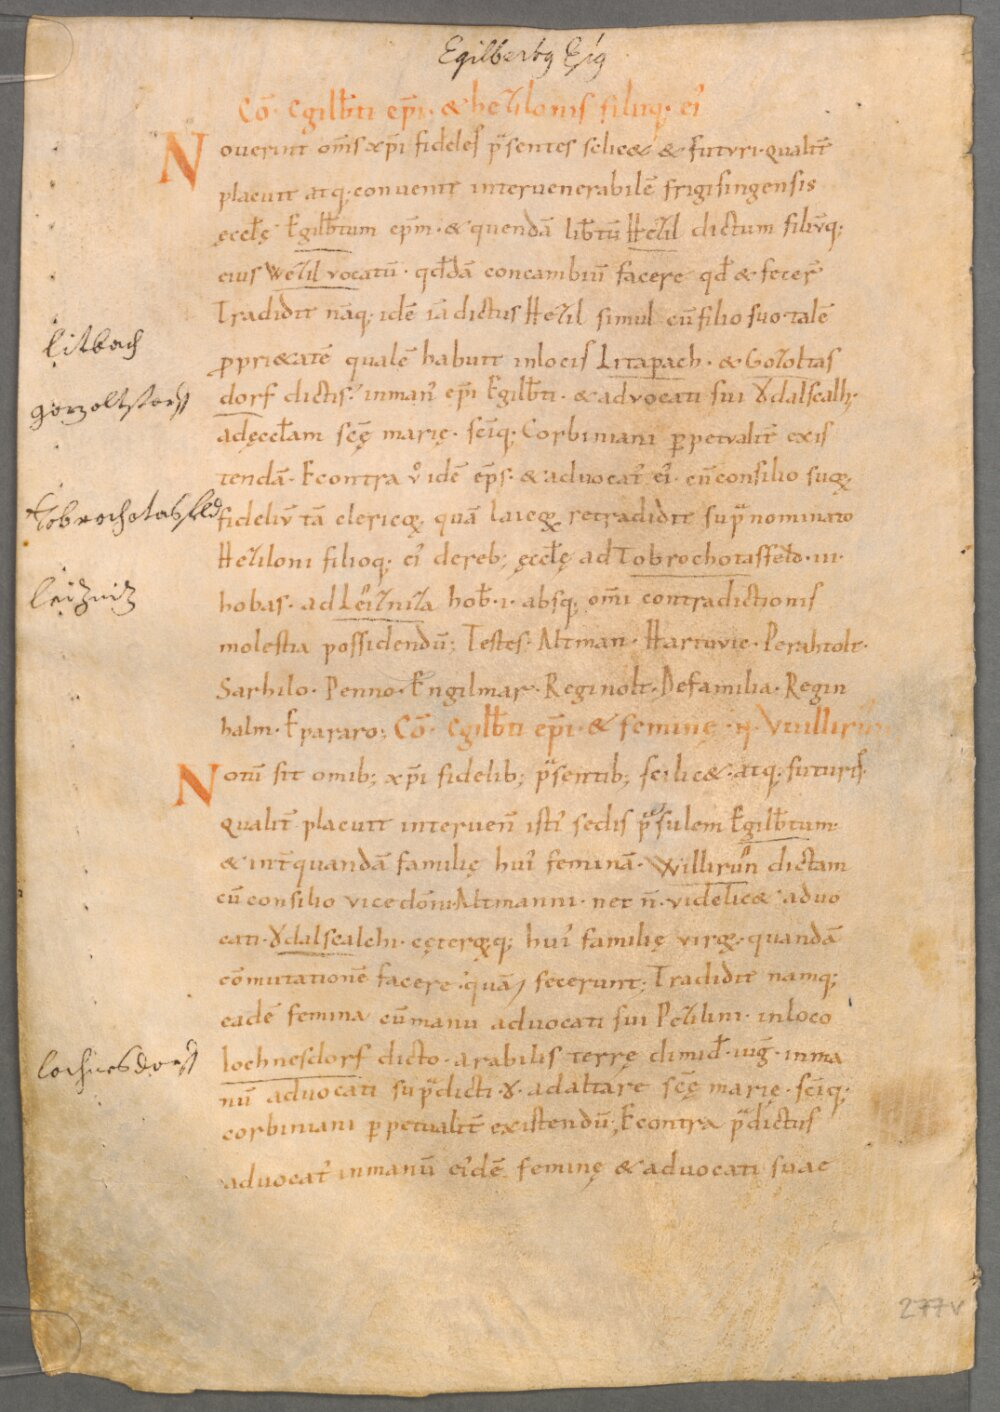 Egilbertꝯ Epiꝯ
Cō· Egilƀti ep̄i· & heZilonis filiiq; ei᾽
Nouerint om̄s xp̄i fideles p̄sentes scilic& & futuri· qualit̄
placuit atq; convenit inter venerabilē frigisingensis
ęccł̄ę Egilƀtum ep̄m· & quendā liƀtū HeZil dictum filiūq;
eius WeZil vocatū· qđdā concambiū facere qđ & fecer̄
Tradidit nāq; idē iā dictus HeZil simul cū filio suo talē
ꝓpri&atē qualē habuit in locis Litapach· & Gololtas
dorf dictis· in man᾽ ep̄i Egilƀti· & advocati sui Ŏdalscalhi
ad ęccłam scę̄ marię· sc̄iq; Corbiniani ꝑpetualit̄ exis
tendā· Econtra v᾽ idē ep̄s· & aduocat᾽ ei᾽· cū consilio suoꝝ
fideliū tā clericoꝝ quā laicoꝝ retradidit sup̄nominato
HeZiloni filioq; ei᾽ de reb; ęccł̄ę ad Tobrochotasfeld· III·
hobas· ad LeiZniZa hoƀ· I· absq; om̄i contradictionis
molestia possidendū; Testes· Altman· Hartuvic· Perahtolt·
Sarhilo· Penno· Engilmar· Reginolt· De familia· Regin
halm· Epararo; Cō· Egilƀti ep̄i· & feminę· N· Vuillirun
Notū sit omib; xp̄i fidelib; p̄sentib; scilic& atq; futuris·
qualit̄ placuit inter ven̄ isti᾽ sedis p̄sulem Egilƀtum·
& int̄ quandā familię hui᾽ feminā· Willirun dictam
cū consilio vicedōni Altmanni· nec n̄· videlic& aduo
cati· Ŏdalscalchi· cęteroꝝq; hui᾽ familię viroꝝ· quandā
cōmutationē facere· quā & fecerunt; Tradidit namq;
eadē femina cū manu advocati sui PeZilini· in loco
lochnesdorf dicto· arabilis terrę dimiđ· iug̅· in ma
nū advocati sup̄dicti· Ŏ· ad altare scę̄ marię· sc̄iq;
corbiniani ꝑpetualit̄ existendū; Econtra p̄dictus
advocat᾽ in manū ei᾽dē feminę & advocati suae
Litbach
gozoltstorff
tobrochotasfeld
Leiznitz
Lochnesdorff
277v